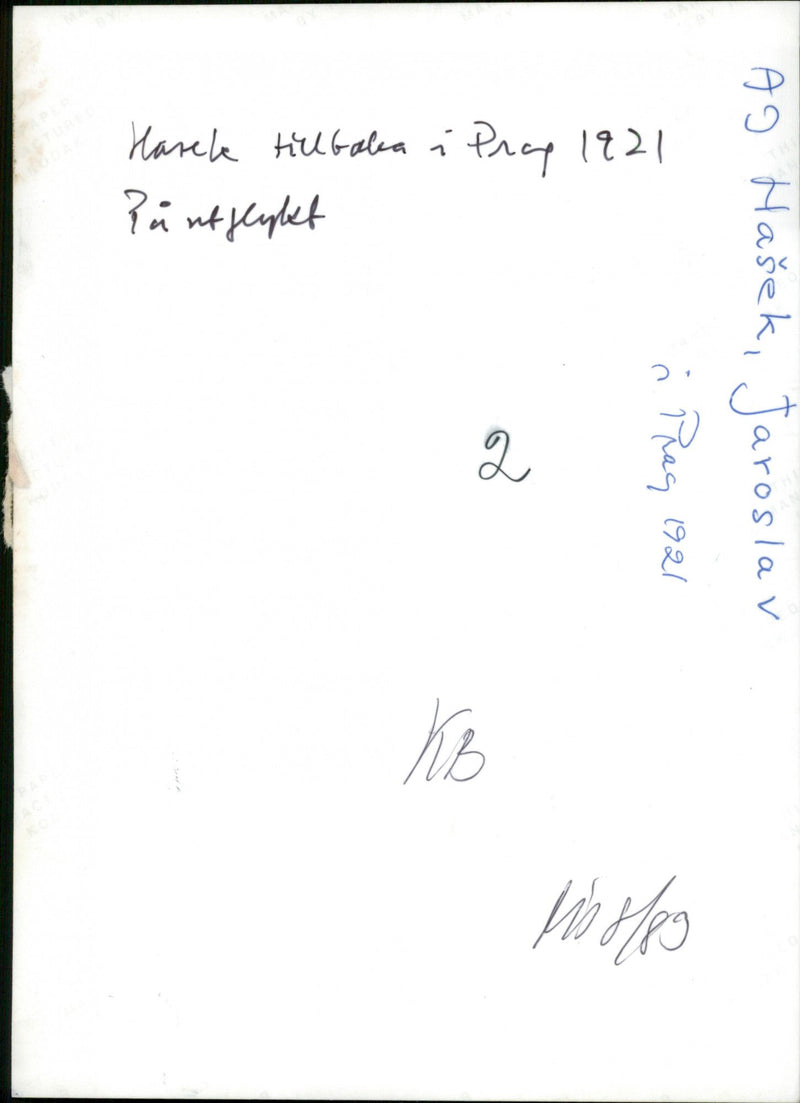 Hasek tillbaka i Prag 1921
På utflykt
Hašek, Jaroslav
i Prag 1921
2
KB
8/89